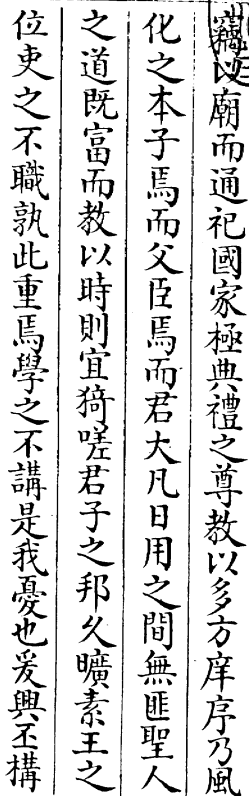 竊以廟而通祀國家極典禮之尊教以多方庠序乃風
化之本子焉而父臣焉而君大凡日用之間無匪聖人
之道既富而教以時則宜猗嗟君子之邦久曠素王之
位吏之不職孰此重焉學之不講是我憂也爰興丕構